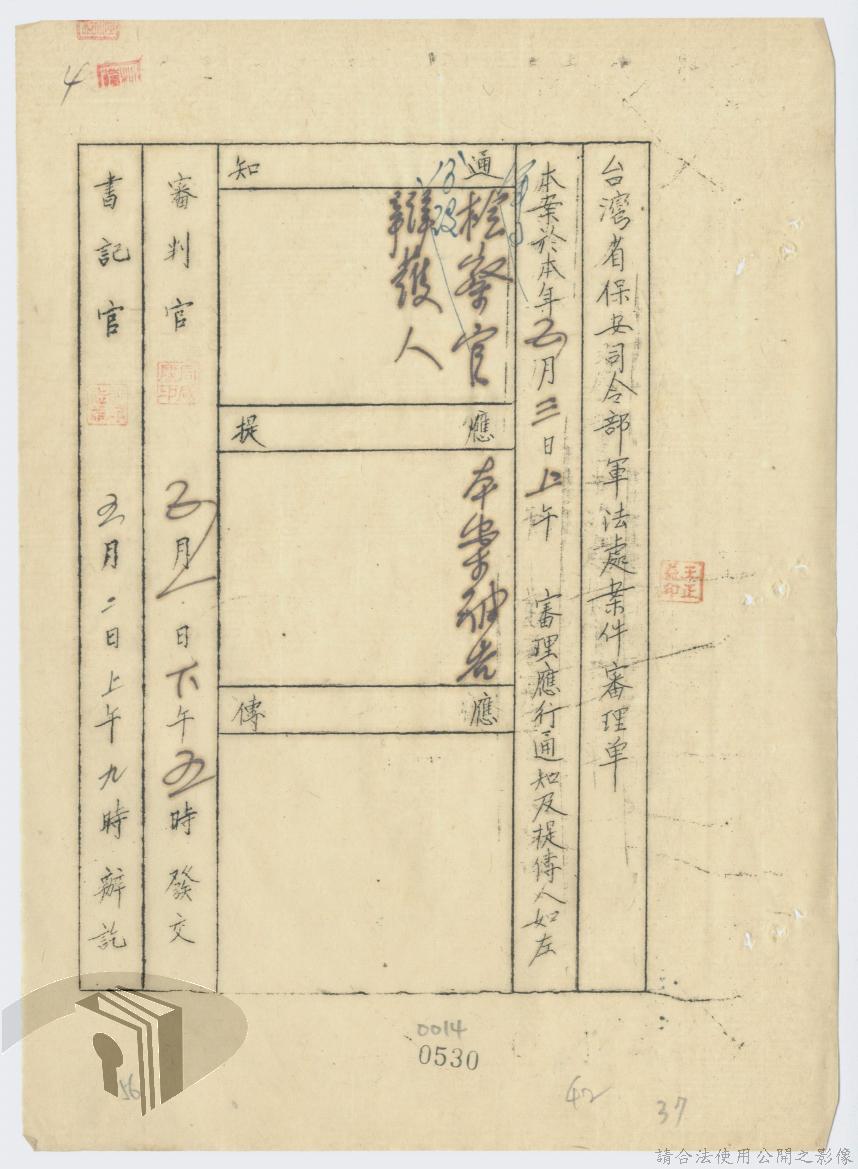 台灣省保安司令部軍法處案件審理单
本案於本年五月三日上午 審理應行通知及提傳人如左
通知
檢察官
辯護人
應提
本案被告
應傳
審判官 五月一日下午五時發交
書記官 五月二日上午九時辦訖
王正
印
4
0014
0530
56
42
37
請合法使用公開之影像